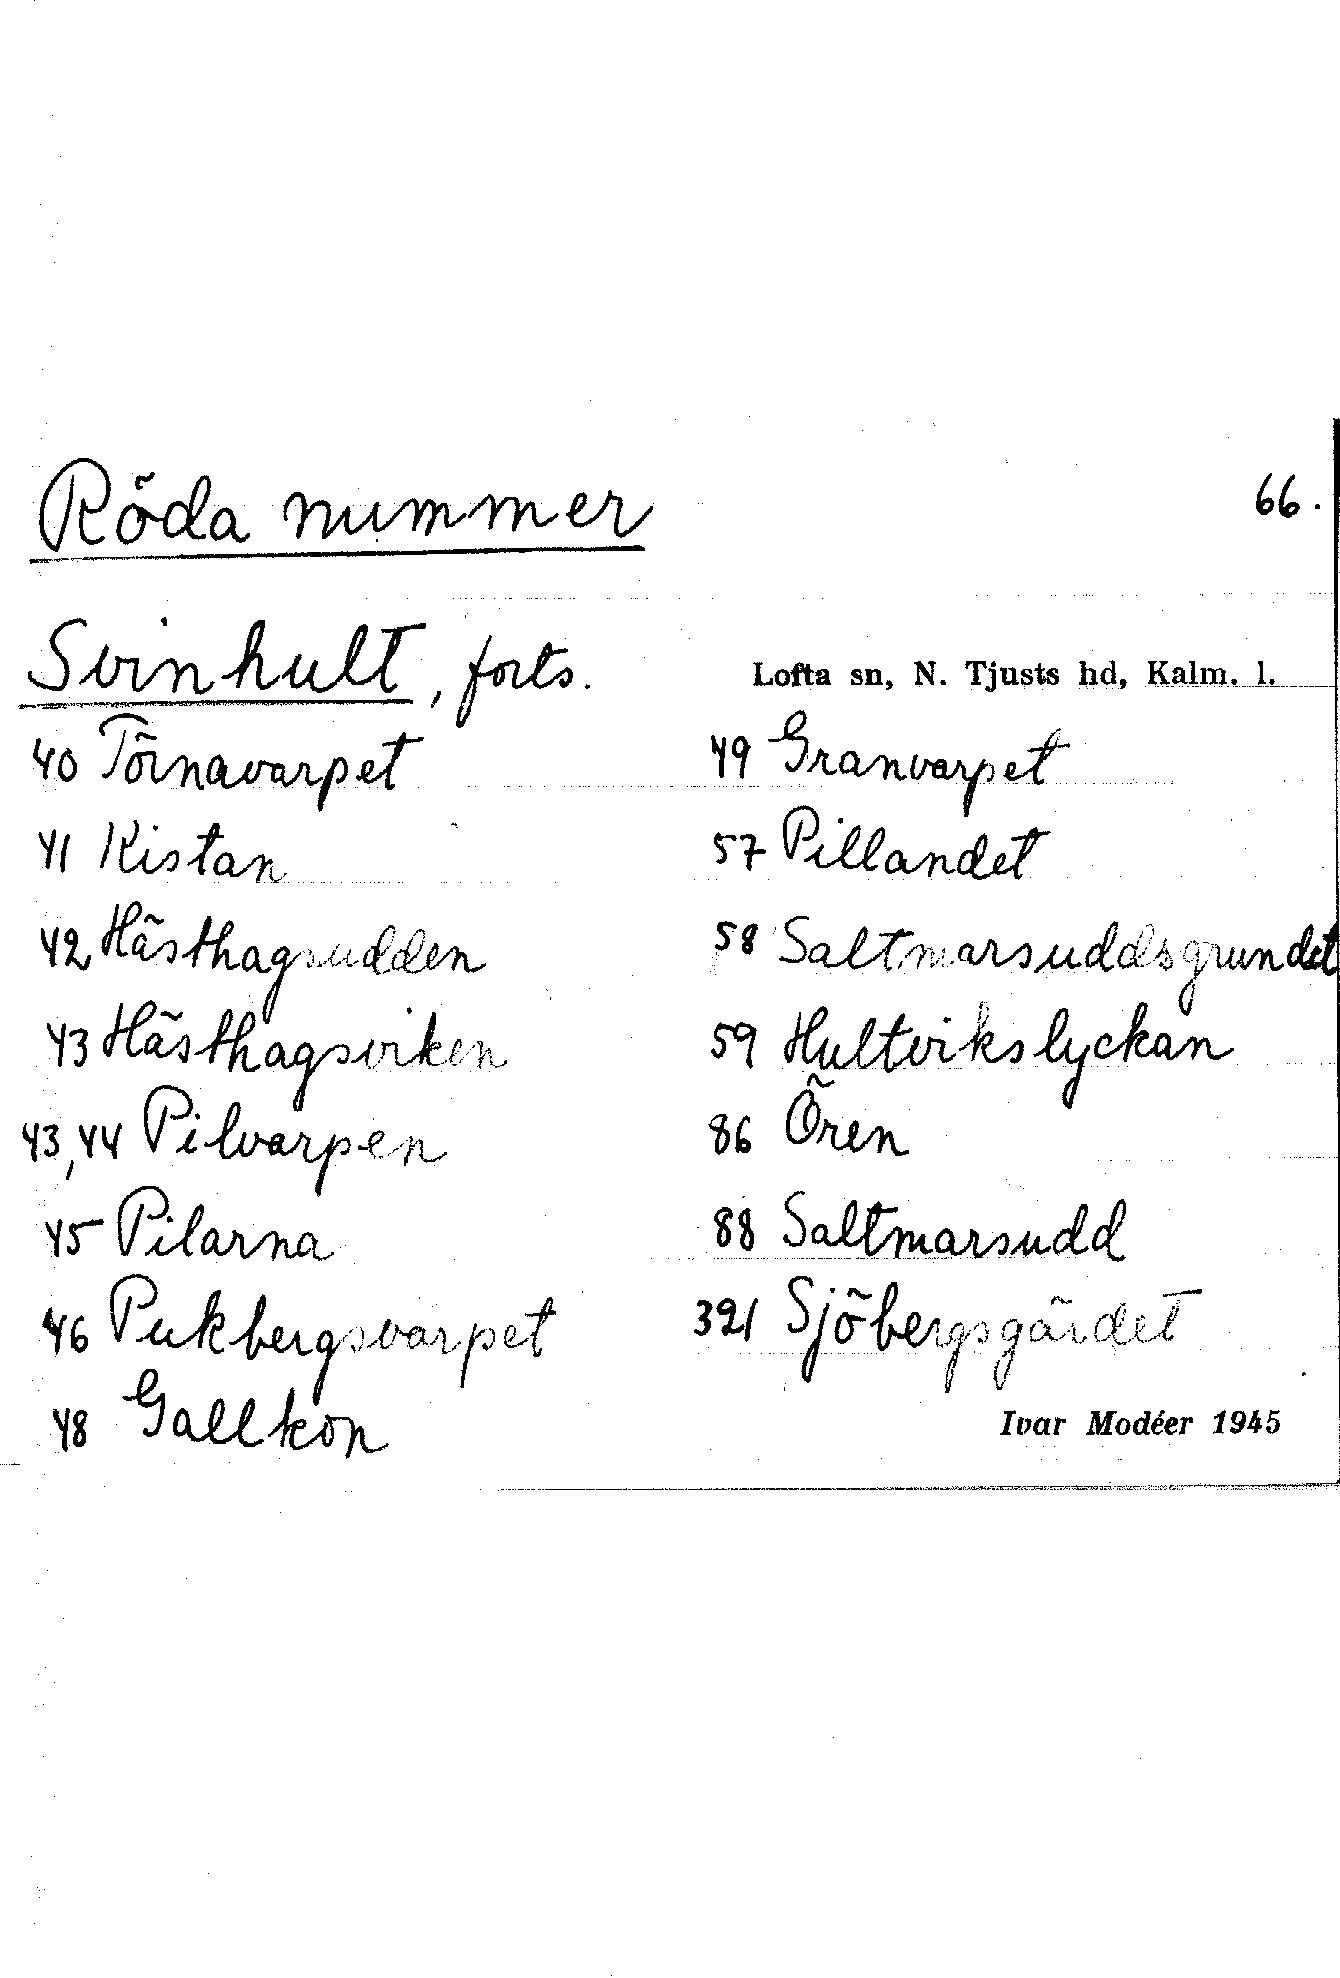 Röda nummer
66.
Svinhult, forts.
Lofta sn, N. Tjusts hd, Kalm. l.
40 Törnavarpet
41 Kistan
42 Hästhagsudden
43 Hästhagsviken
43,44 Pilvarpen
45 Pilarna
46 Pukbergsvarpet
48 Gallkon
49 Granvarpet
57 Pillandet
58 Saltmarsuddsgrundet
59 Hultvikslyckan
86 Ören
88 Saltmarsudd
321 Sjöbergsgärdet
Ivar Modéer 1945